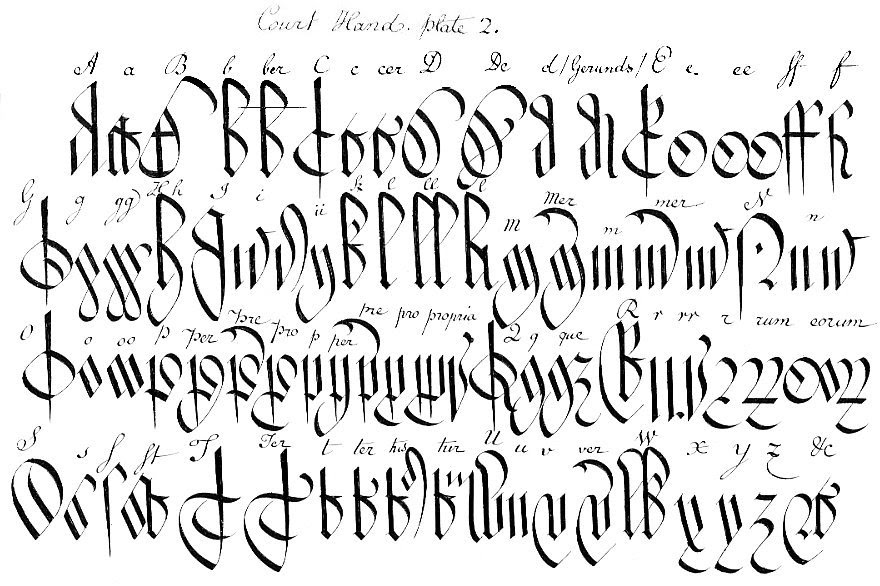 Court Hand. plate 2.
A a B b ber C c cer D De d /Gerunds/ E e. ee ff f
G g gg H h I i ii k l ll M Mer m mer N n
O o oo p Per Pre pro p per pre pro propria Q q que R r rr r rum eorum
S s f ft T Ter t ter his tur U u v ver W x y z &c